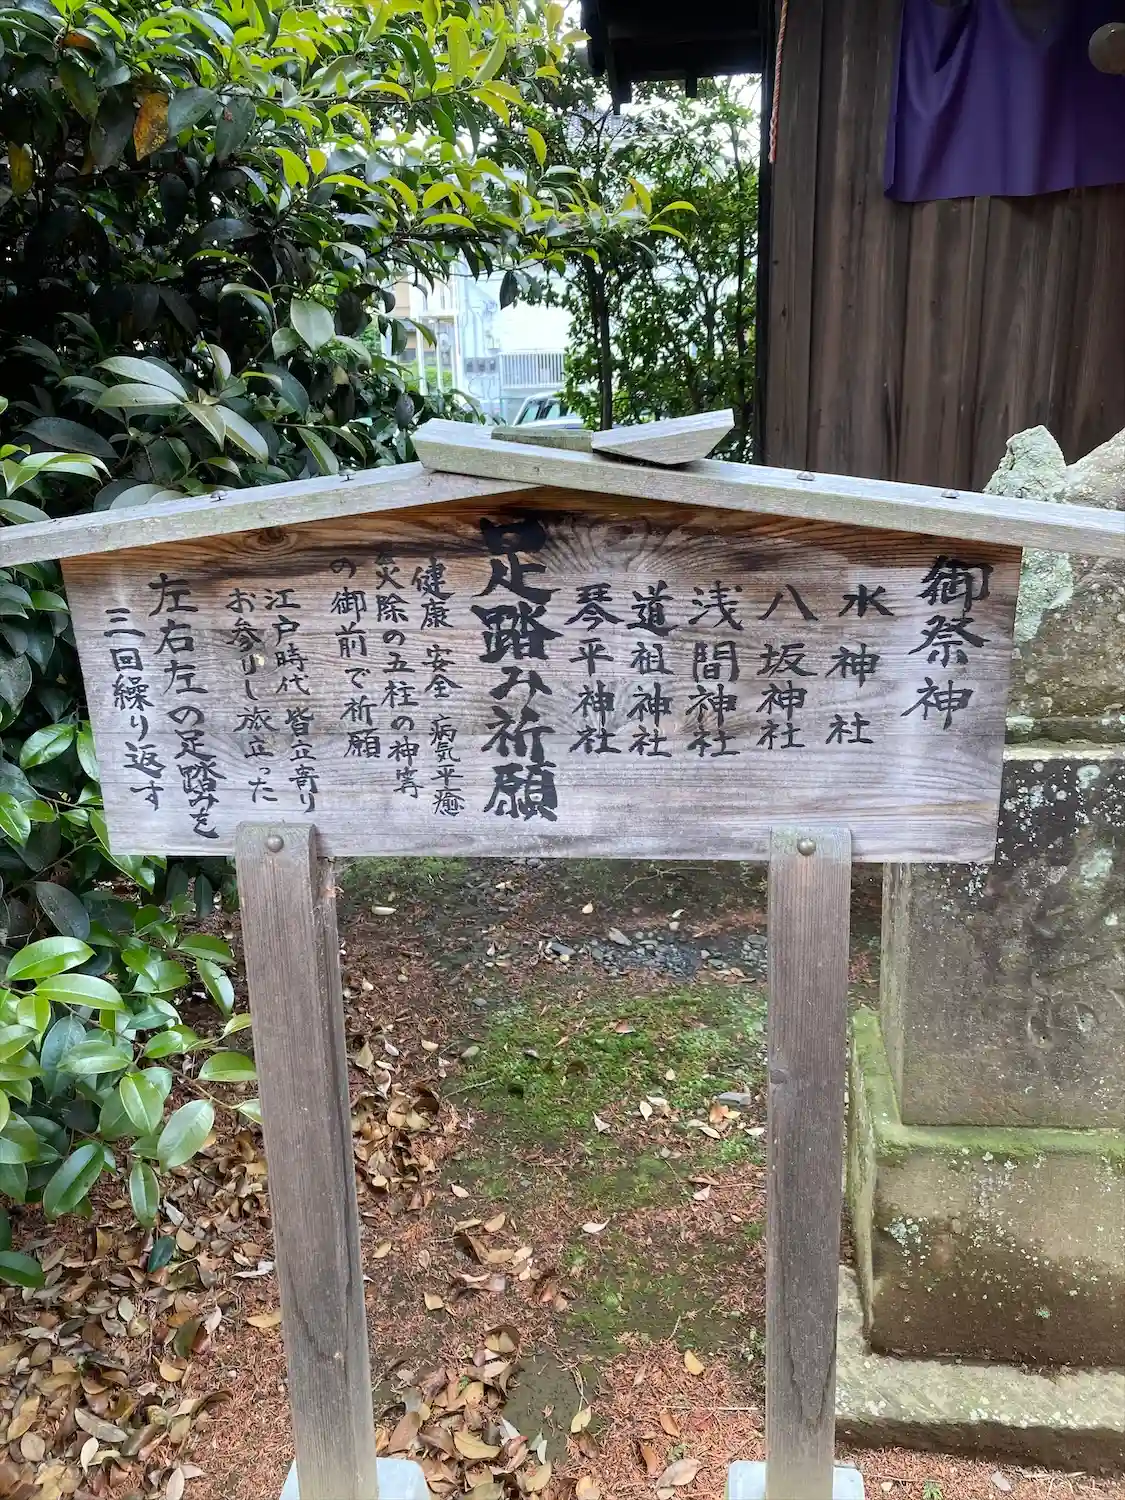 御祭神
水神社
八坂神社
浅間神社
道祖神社
琴平神社
足踏み祈願
健康 安全 病気平癒
災除の五柱の神
の御前で祈願
江戸時代 皆立寄り
お参りし旅立った
左右左の足踏みを
三回繰り返す